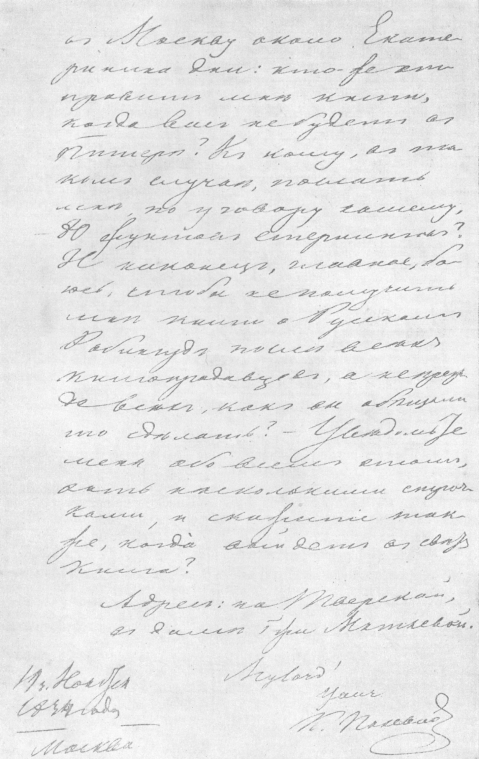 въ Москву около Екате-
ринина дня: кто же от-
правитъ мнѣ книги,
когда васъ не будетъ въ
Питерѣ? Къ кому, въ та-
комъ случаѣ, послать
мнѣ по уговору нашему,
10 фунтовъ стерлинговъ?
И наконецъ, главное, бо-
юсь, чтобы не получить
мнѣ книги о Русскомъ
Робингудѣ послѣ всѣхъ
книгопродавцевъ, а не преж-
де всѣхъ, какъ он обѣщали
то сдѣлать? – Увѣдомьте
меня обо всемъ этомъ,
хоть нѣсколькими строч-
ками, и скажите так-
же, когда выйдетъ въ свѣтъ
книга?
Адресъ: на Тверской,
въ домѣ Гжи Мятлевой.
Mylord!
Вашъ
К. Полевой
19. Ноября
1834 года
Москва